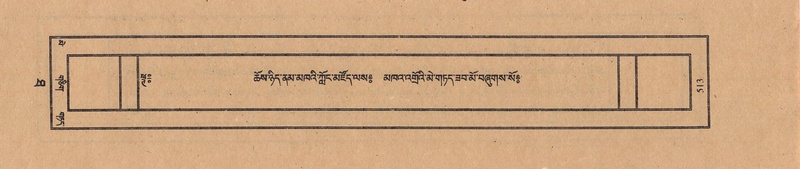 གཅིག
ཆོས་ཉིད་ནམ་མཁའི་ཀློང་མཛོད་ལས༔ མཁའ་འགྲོའི་མེ་གཏད་ཟབ་མོ་བཞུགས་སོ༔
513